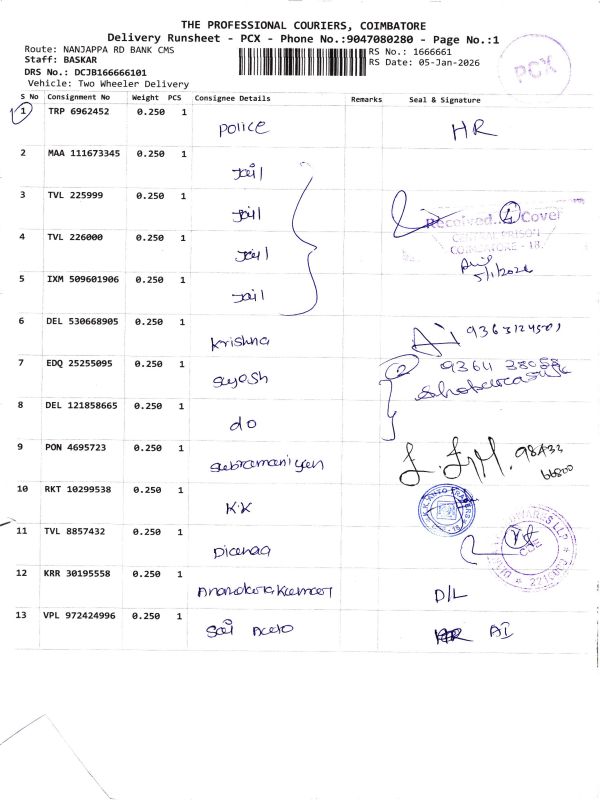 THE PROFESSIONAL COURIERS, COIMBATORE
Delivery Runsheet - PCX - Phone No.:9047080280 - Page No.:1
Route: NANJAPPA RD BANK CMS
RS No.: 1666661
Staff: BASKAR
RS Date: 05-Jan-2026
DRS No.: DCJB166666101
Vehicle: Two Wheeler Delivery
PCX
S No Consignment No Weight PCS Consignee Details Remarks Seal & Signature
1 TRP 6962452 0.250 1 police HR
2 MAA 111673345 0.250 1 Jail
3 TVL 225999 0.250 1 Jail
Received 4 Cover
4 TVL 226000 0.250 1 Jail
CENTRAL PRISON
COIMBATORE - 18.
5/1/2026
5 IXM 509601906 0.250 1 Jail
6 DEL 530668905 0.250 1 Krishna
7 EDQ 25255095 0.250 1 Suyosh 2
8 DEL 121858665 0.250 1 do
9 PON 4695723 0.250 1 Subramaniyan 98433
66800
10 RKT 10299538 0.250 1 K.K
11 TVL 8857432 0.250 1 COE
12 KRR 30195558 0.250 1 D/L
13 VPL 972424996 0.250 1 Sai AI